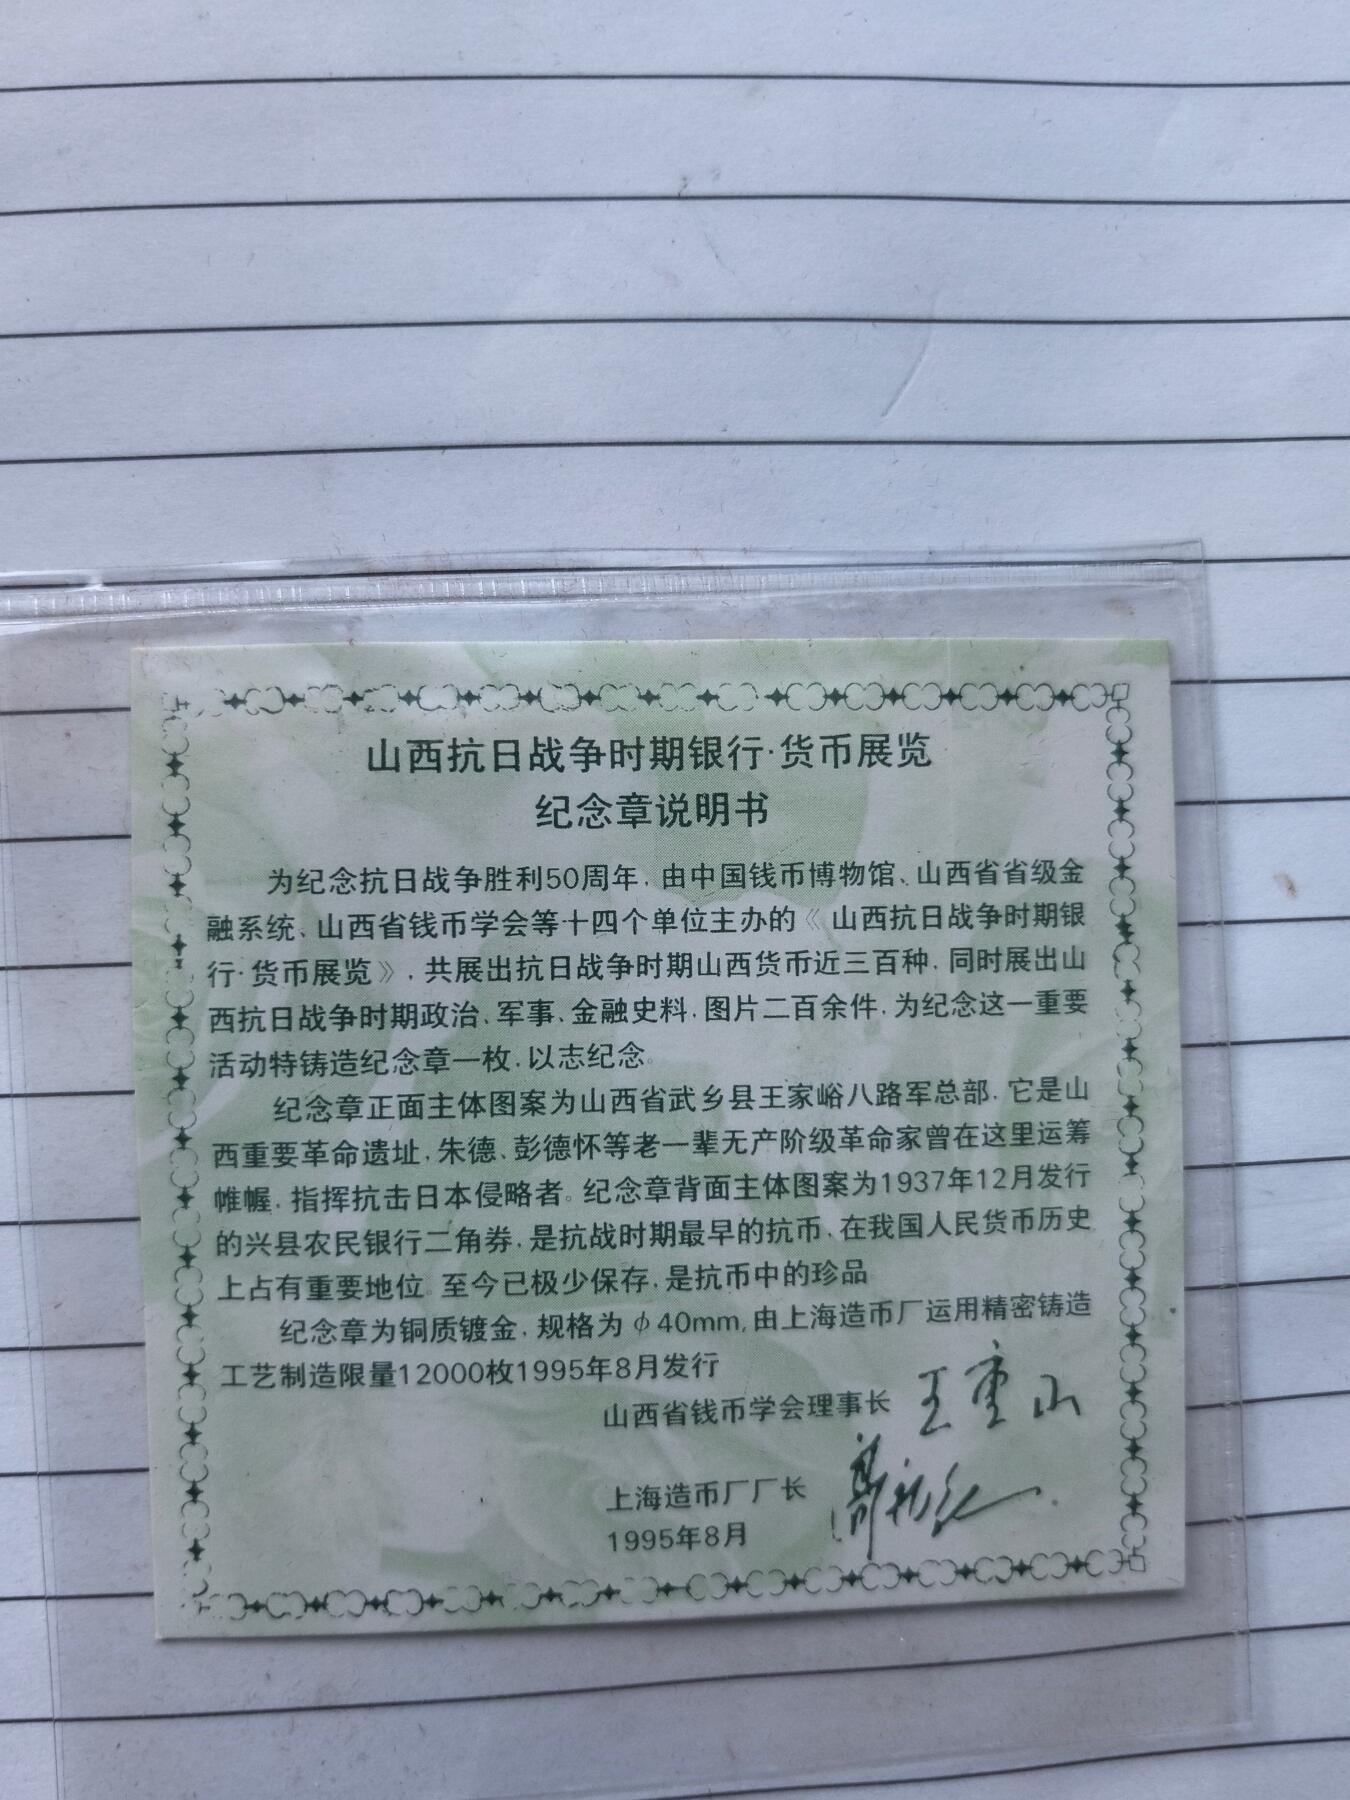 山西抗日战争时期银行·货币展览
纪念章说明书
为纪念抗日战争胜利50周年，由中国钱币博物馆、山西省省级金
融系统、山西省钱币学会等十四个单位主办的《山西抗日战争时期银
行·货币展览》，共展出抗日战争时期山西货币近三百种，同时展出山
西抗日战争时期政治、军事、金融史料，图片二百余件，为纪念这一重要
活动特铸造纪念章一枚，以志纪念。
纪念章正面主体图案为山西省武乡县王家峪八路军总部，它是山
西重要革命遗址，朱德、彭德怀等老一辈无产阶级革命家曾在这里运筹
帷幄，指挥抗击日本侵略者。纪念章背面主体图案为1937年12月发行
的兴县农民银行二角券，是抗战时期最早的抗币，在我国人民货币历史
上占有重要地位。至今已极少保存，是抗币中的珍品
纪念章为铜质镀金，规格为φ40mm,由上海造币厂运用精密铸造
工艺制造限量12000枚1995年8月发行
山西省钱币学会理事长 王重山
上海造币厂厂长
1995年8月